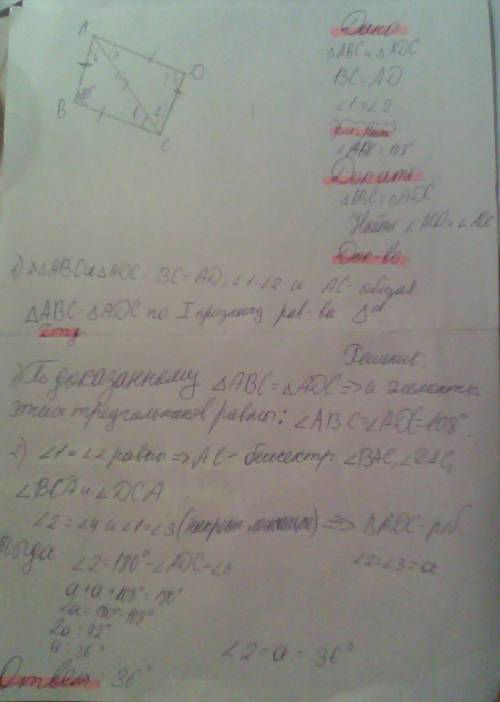 A
D
B
C
Дано
△ABC и △ADC
BC = AD
∠1=∠2
∠ABC = 108°
Доказать
△ABC = △ADC
Найти
Док-во
1) △ABC и △ADC BC = AD, ∠1=∠2 и AC - общая
△ABC = △ADC по I признаку рав-ва
Чтд
Решение.
1) По доказанному △ABC = △ADC => и элементы
этих треугольников равны: ∠ABC = ∠ADC = 108°
2) ∠1=∠2 равны => AC - биссектр. ∠BAC,
∠BCA и ∠DCA
∠2=∠4 и ∠1=∠3 (накрест лежащие) => △ADC - р/б.
Тогда
∠2 = 180° - ∠ADC - ∠3
∠2=∠3= a
a + a + 108° = 180°
2a = 180° - 108°
2a = 72°
a = 36°
∠2 = a = 36°
Ответ: 36°